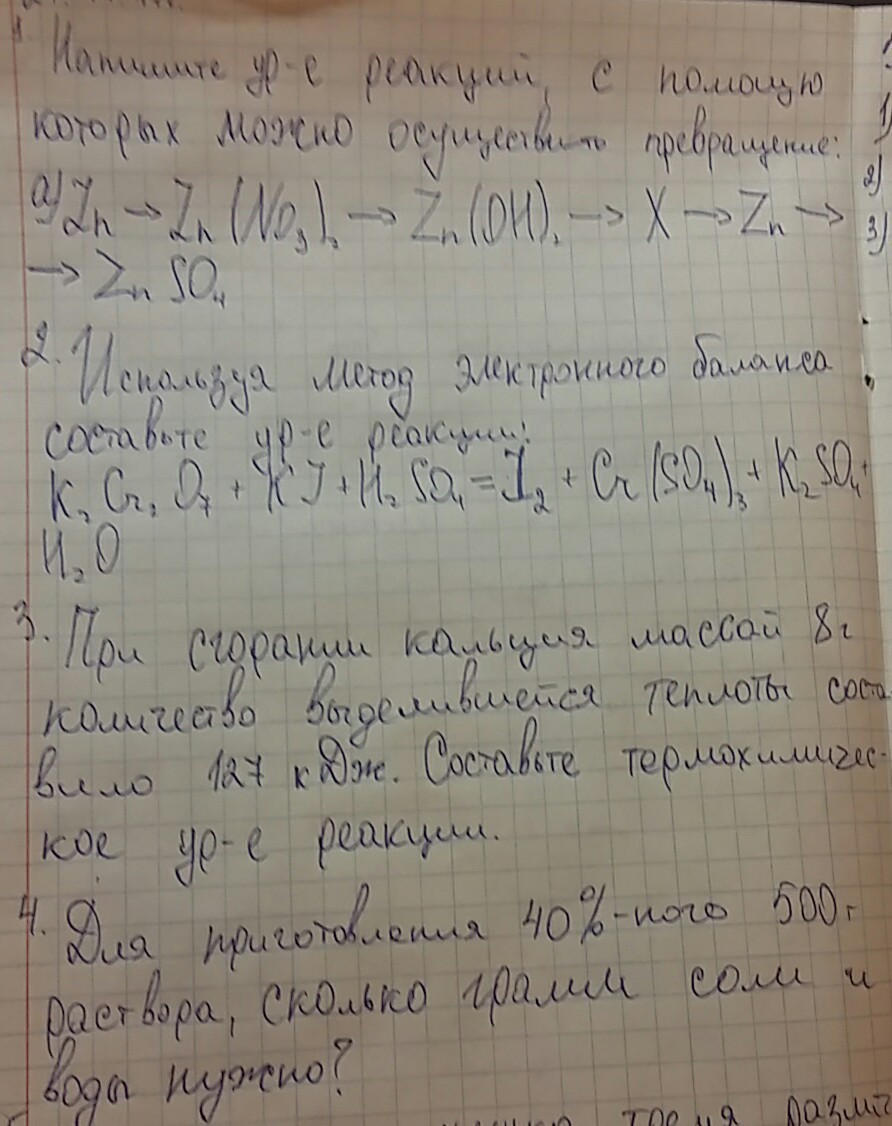 Напишите ур-е реакций, с помощю
которых можно осуществить превращение:
а) Zn → Zn(NO₃)₂ → Zn(OH)₂ → X → Zn →
→ ZnSO₄
2. Используя метод электронного баланса
составьте ур-е реакции:
K₂Cr₂O₇ + KJ + H₂SO₄ = J₂ + Cr(SO₄)₃ + K₂SO₄ +
H₂O
3. При сгорании кальция массой 8г
количество выделившейся теплоты соста-
вило 127 кДж. Составьте термохимичес-
кое ур-е реакции.
4. Для приготовления 40%-ного 500г
раствора, сколько грамм соли и
воды нужно?
1)
2)
3)